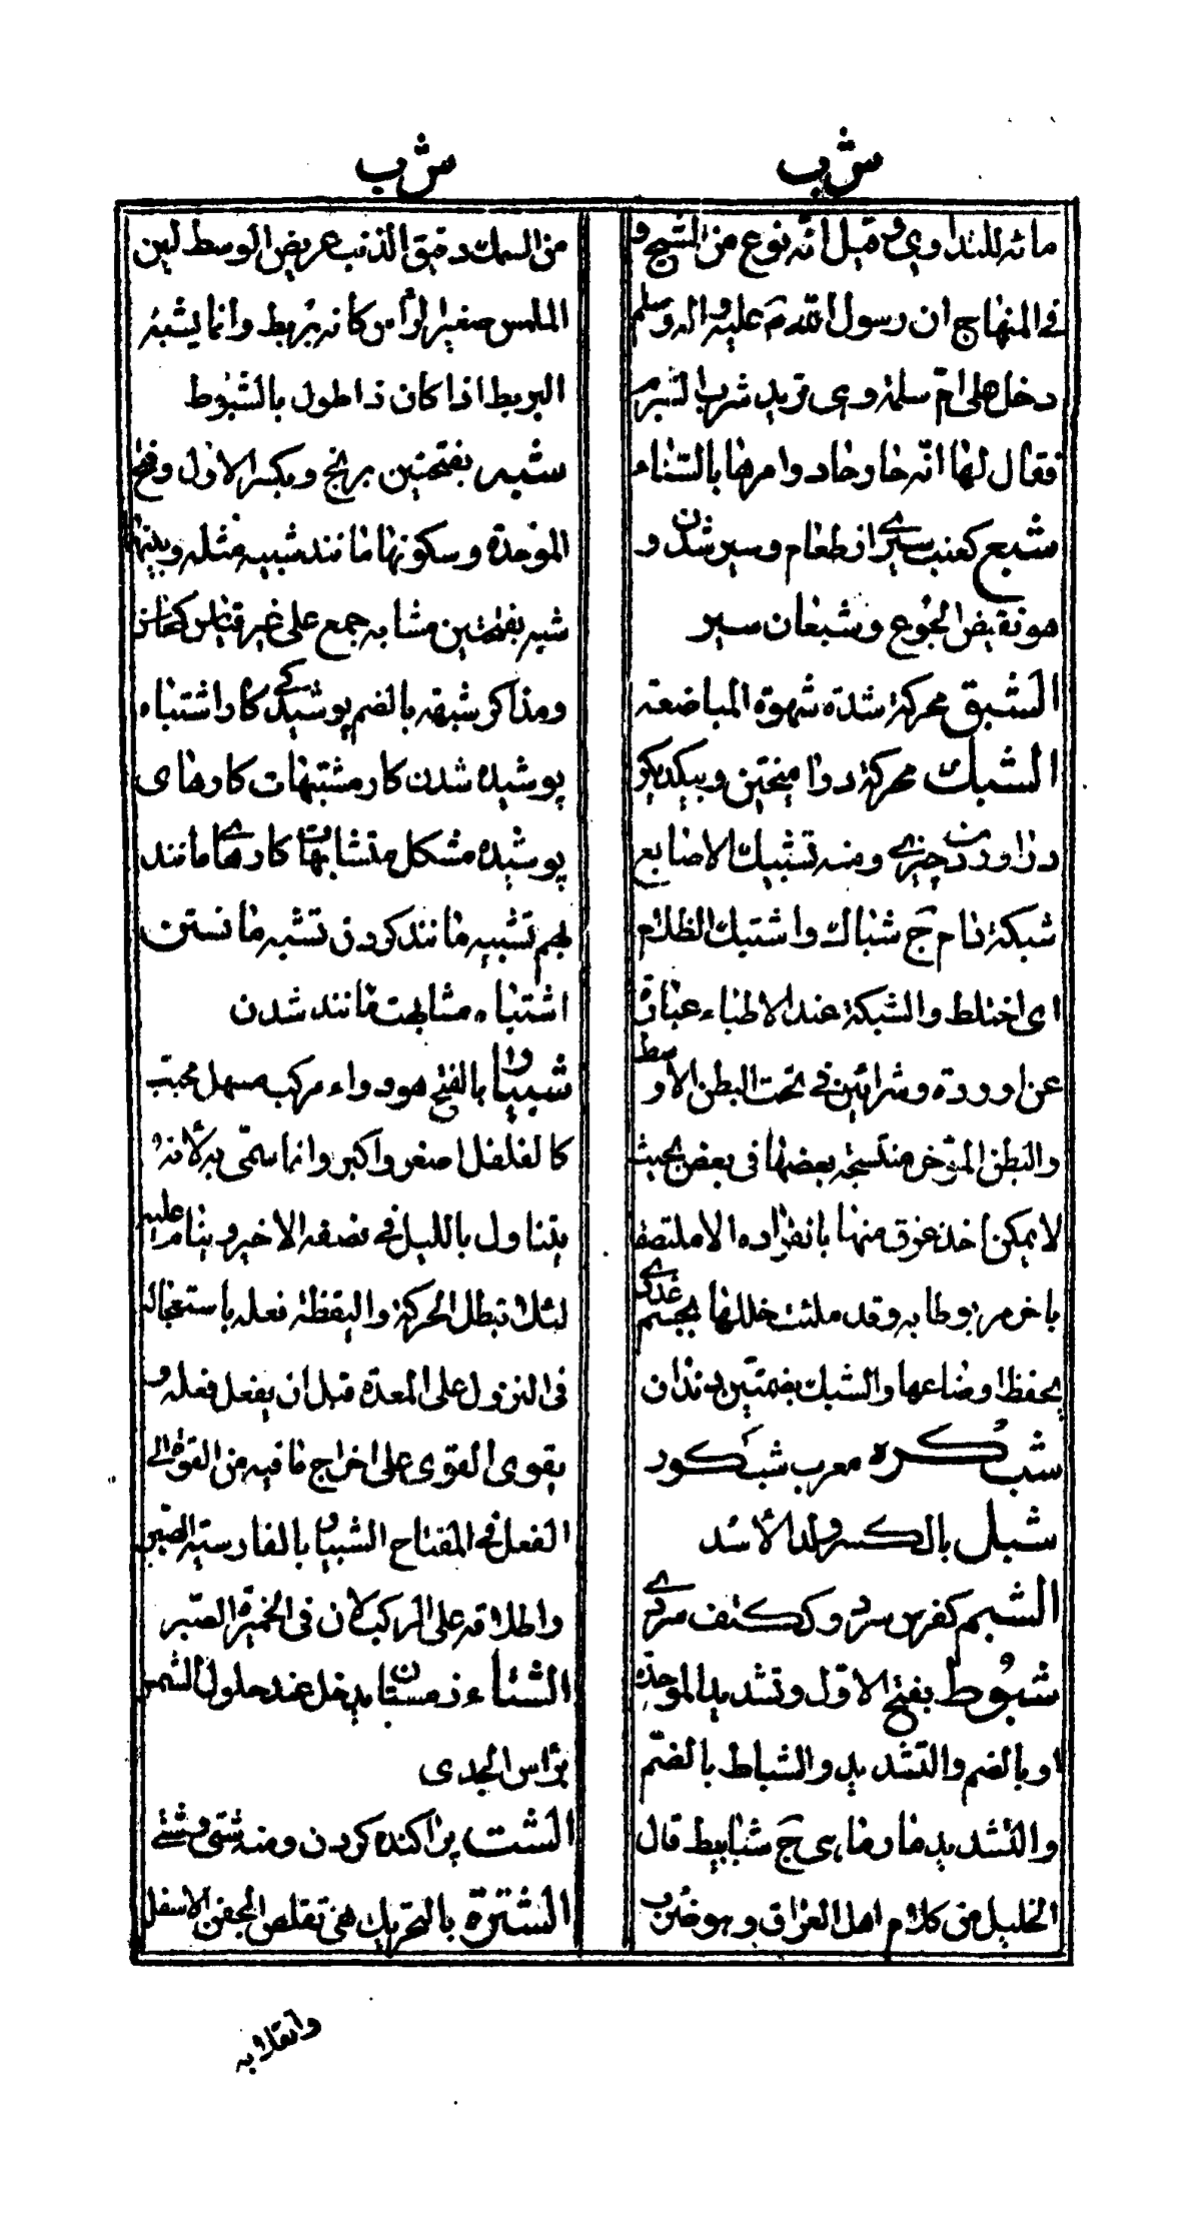 ش ب
مائه للتداوي وقيل انّه نوع من الشيح و
في المنهاج ان رسول اللّه صَ عليه واله وسلم
دخل على امّ سلمة وهى تريد شرب الشبرم
فقال لها انّه حار حار وامرها بالسّناء
شبع كعنب سيرے از طعام وسير شدن و
هو نقيض الجُوع وشبعان سير
الشبق محركة شدة شهوة المباضعة
الشبك محركة درا ميختن وبيكديكر
دراوردن چيزے ومنه تشبيك الاصابع
شبكة دام جَ شباك واشتبك الظلام
اى اختلط والشبكة عند الاطباء عبارة
عن اوردة وشرائين في تحت البطن الاوسط
والبطن المؤخر منتسجة بعضها فى بعض بحيث
لا يمكن اخذ عرق منها بانفراده الا ملتصقا
باخر مربوطا به وقد ملئت خللها بجسم غددے
يحفظ اوضاعها والشبك بضمتين دندان
شب كُره معرب شب كور
شبل بالكسر ولد الأسد
الشبم كفرس سرد وككتف سردے
شبُّوط بفتح الاوّل وتشديد الموحدة
او بالضم والتشديد والشباط بالضم
والتشديد مار ماہى جَ شبابيط قال
الخليل من كلام اهل العراق وهو ضرب
ش ب
من السمك دقيق الذنب عريض الوسط لين
الملمس صغير الرأس كانه بربط وانما يشبه
البربط اذا كان ذا طول بالشبوط
شبه بفتحتين برنج وبكسر الاول وفتح
الموحدة وسكونها مانند شبيه مثله وبينهما
شبه بفتحتين مشابه جمع على غير قياس كمحاسن
ومذاكر شبهه بالضم پوشيدكے كار اشتباه
پوشيده شدن كار مشتبهات كارهاى
پوشيده مشكل متشابهات كارهاے مانند
بهم تشبيه مانند كردن تشبه مانستن
اشتباه مشابهت مانند شدن
شبيار بالفتح هو دواء مركب مسهل محبب
كالفلفل اصغر واكبر وانما سمّى به لأنه
يتناول بالليل في نصفه الاخير وينام عليه
لئلا تبطل الحركة واليقظة فعله باستعجاله
فى النزول على المعدة قبل ان يفعل فعله و
يقوى القوى على اخراج ما فيه من القوة الى
الفعل في المفتاح الشبيار بالفارسية الصبر
واطلاقه على المركب لان فى الخميرة الصّبر
الشتاء زمستان يدخل عند حلول الشمس
برأس الجدى
الشت پراكنده كردن ومنه شتى وشتّے
الشترة بالتحريك هى تقلص الجفن الاسفل
وانقلابه